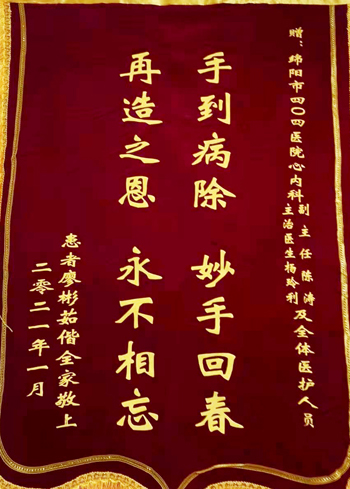 赠：绵阳市四〇四医院心内科副主任陈涛主治医生杨玲利及全体医护人员
手到病除 妙手回春
再造之恩 永不相忘
患者廖彬茹偕全家敬上
二零二一年一月